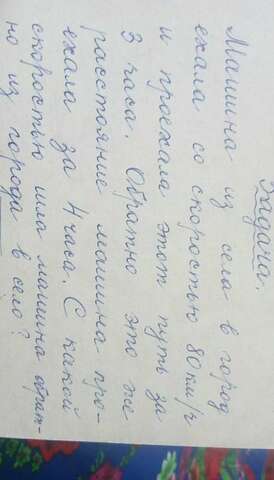 Задача.
Машина из села в город
ехала со скоростью 80 км/ч
и проехала этот путь за
3 часа. Обратно это же
расстояние машина про-
ехала за 4 часа. С какой
скоростью шла машина обрат-
но из города в село?